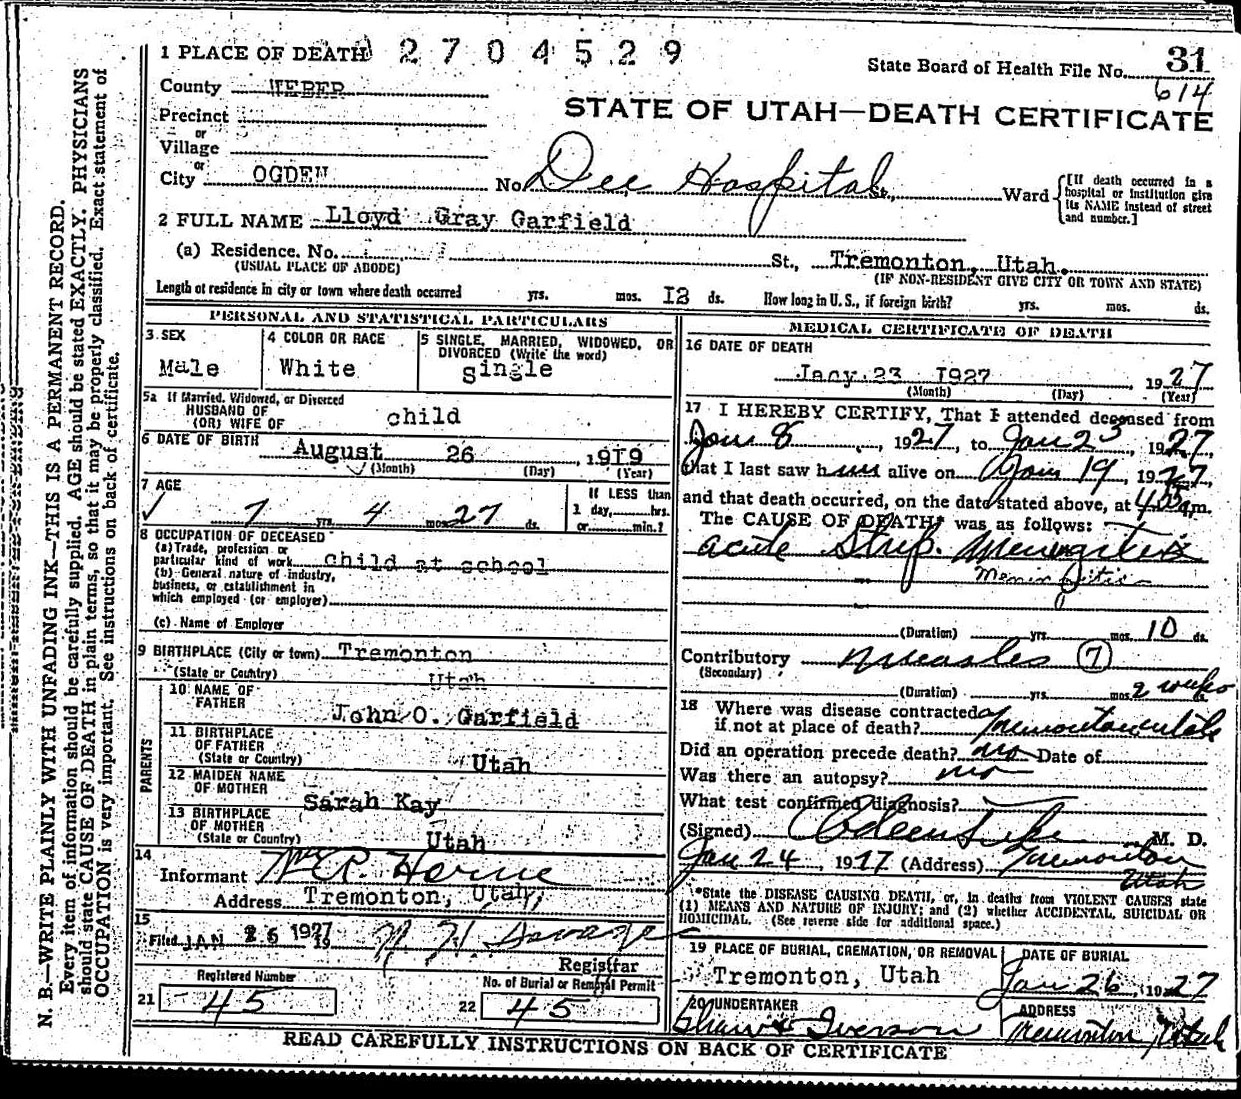 1 PLACE OF DEATH 2704529
State Board of Health File No. 31
614
County WEBER
STATE OF UTAH—DEATH CERTIFICATE
Precinct
or
Village
or
City OGDEN
No. Dee Hospital St., Ward
[If death occurred in a hospital or institution give its NAME instead of street and number.]
2 FULL NAME Lloyd Gray Garfield
(a) Residence. No. St., Tremonton, Utah.
(USUAL PLACE OF ABODE) (IF NON-RESIDENT GIVE CITY OR TOWN AND STATE)
Length of residence in city or town where death occurred yrs. mos. I2 ds. How long in U. S., if foreign birth? yrs. mos. ds.
PERSONAL AND STATISTICAL PARTICULARS
3 SEX
Male
4 COLOR OR RACE
White
5 SINGLE, MARRIED, WIDOWED, OR
DIVORCED (Write the word)
single
5a If Married, Widowed, or Divorced
HUSBAND OF
(OR) WIFE OF child
6 DATE OF BIRTH August 26, 1919
(Month) (Day) (Year)
7 AGE
7 yrs. 4 mos. 27 ds.
If LESS than
1 day, hrs.
or min.?
8 OCCUPATION OF DECEASED
(a) Trade, profession or
particular kind of work Child at school
(b) General nature of industry,
business, or establishment in
which employed (or employer)
(c) Name of Employer
9 BIRTHPLACE (City or town) Tremonton
(State or Country) Utah
PARENTS
10 NAME OF
FATHER John O. Garfield
11 BIRTHPLACE
OF FATHER
(State or Country) Utah
12 MAIDEN NAME
OF MOTHER Sarah Kay
13 BIRTHPLACE
OF MOTHER
(State or Country) Utah
14
Informant R. Horne
Address Tremonton, Utah,
15
Filed JAN 26 1927 19
Registrar
Registered Number
21 45
No. of Burial or Removal Permit
22 45
MEDICAL CERTIFICATE OF DEATH
16 DATE OF DEATH
Jany 23 I927, 1927
(Month) (Day) (Year)
17 I HEREBY CERTIFY, That I attended deceased from
Jan 8, 1927, to Jan 23, 1927,
that I last saw him alive on Jan 19, 1927,
and that death occurred, on the date stated above, at m.
The CAUSE OF DEATH* was as follows:
acute Strep. Meningitis
Meningitis
(Duration) yrs. mos. 10 ds.
Contributory measles 7
(Secondary)
(Duration) yrs. mos. 2 weeks ds.
18 Where was disease contracted
if not at place of death? Tremonton Utah
Did an operation precede death? no Date of
Was there an autopsy? no
What test confirmed diagnosis?
(Signed) M. D.
Jan 24, 1927 (Address) Tremonton
Utah
*State the DISEASE CAUSING DEATH, or, in deaths from VIOLENT CAUSES state
(1) MEANS AND NATURE OF INJURY; and (2) whether ACCIDENTAL, SUICIDAL OR
HOMICIDAL. (See reverse side for additional space.)
19 PLACE OF BURIAL, CREMATION, OR REMOVAL
Tremonton, Utah
DATE OF BURIAL
Jan 26, 1927
20 UNDERTAKER
Shaw & Iverson
ADDRESS
Tremonton Utah
READ CAREFULLY INSTRUCTIONS ON BACK OF CERTIFICATE
N. B.—WRITE PLAINLY WITH UNFADING INK—THIS IS A PERMANENT RECORD.
Every item of information should be carefully supplied. AGE should be stated EXACTLY. PHYSICIANS
should state CAUSE OF DEATH in plain terms, so that it may be properly classified. Exact statement of
OCCUPATION is very important. See instructions on back of certificate.